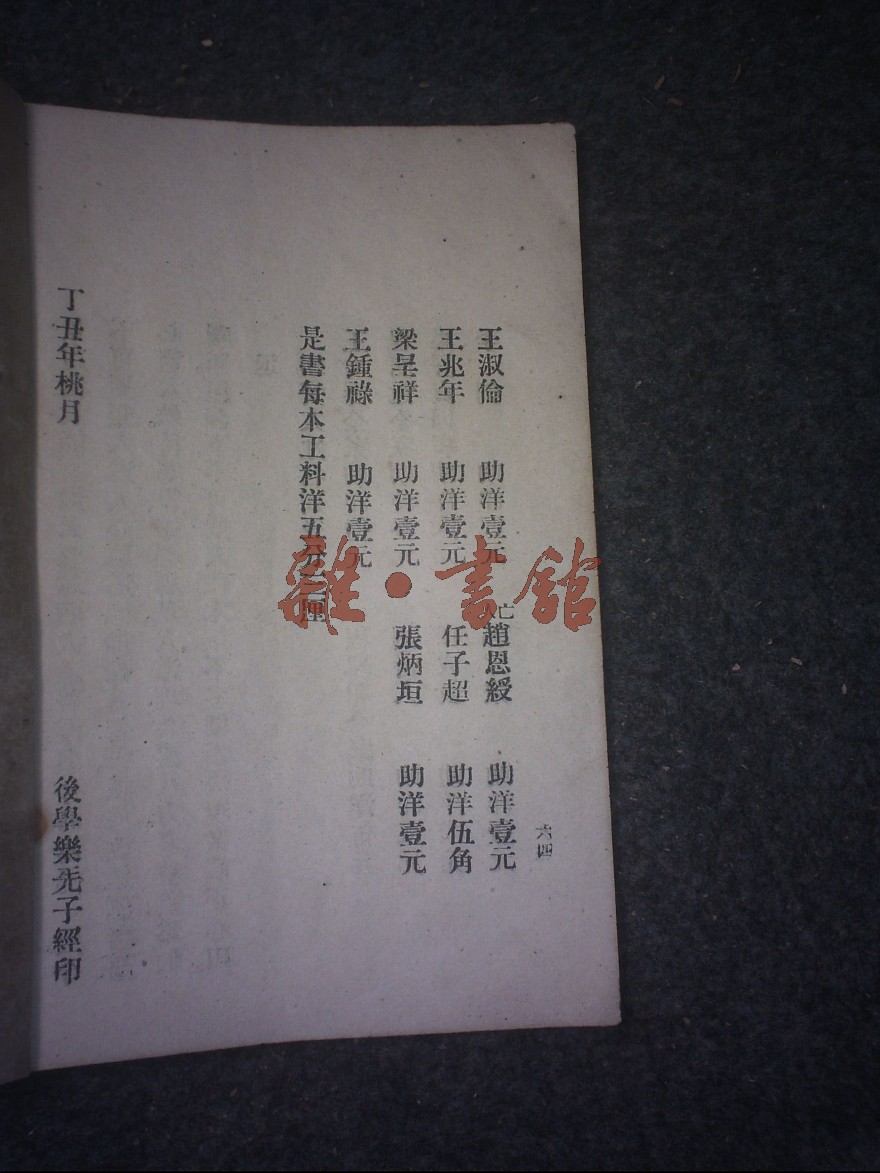 六四
王淑倫 助洋壹元 亡趙恩綬 助洋壹元
王兆年 助洋壹元 任子超 助洋伍角
梁呈祥 助洋壹元 張炳垣 助洋壹元
王鍾祿 助洋壹元
是書每本工料洋五分 厘
丁丑年桃月 後學樂先子經印
雜·書館